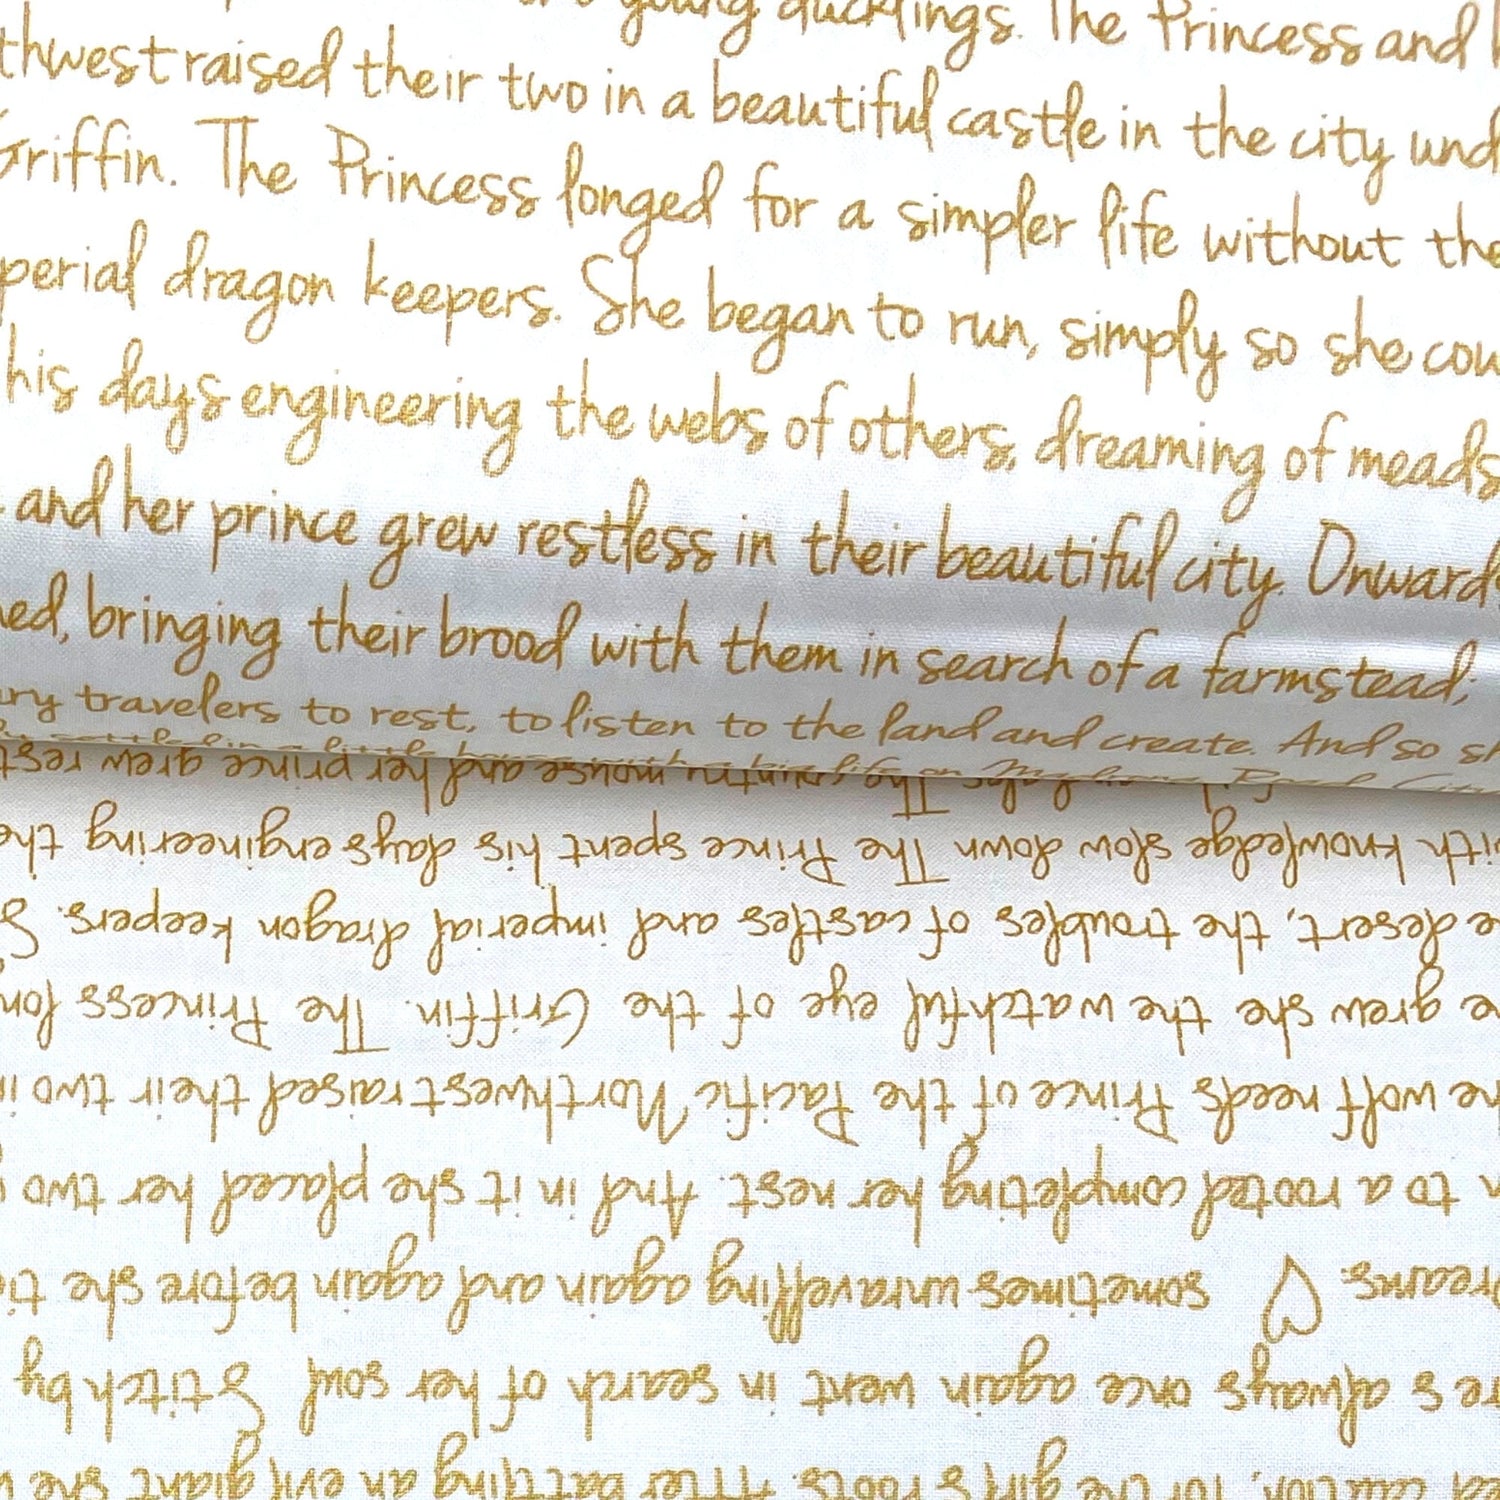 young ducklings. The Princess and
thwest raised their two in a beautiful castle in the city und
Griffin. The Princess longed for a simpler life without the
perial dragon keepers. She began to run, simply so she cou
his days engineering the webs of others, dreaming of meads
and her prince grew restless in their beautiful city. Onwards
ed, bringing their brood with them in search of a farmstead;
ry travelers to rest, to listen to the land and create. And so sh
settled in a little house with a big life on
ed caution, for the girl's roots. After battling an evil giant she w
re's always once again went in search of her soul Stitch by
Dreams. ♡ sometimes unravelling again and again before she ti
n to a rooted completing her nest. And in it she placed her two
he wolf needs Prince of the Pacific Northwest raised their two in
he grew she the watchful eye of the Griffin. The Princess lon
e desert, the troubles of castles and imperial dragon keepers. S
ith knowledge slow down The Prince spent his days engineering the
The mountain mouse and her prince grew rest